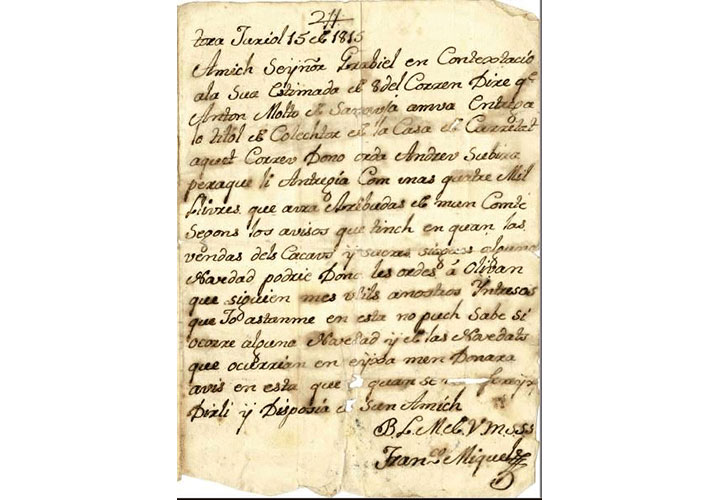 tora Juriol 15 de 1815
Amich Señor Grabiel en Contextacio
ala Sua Estimada de 8 del Corren Dire q.e
Anton Molto de Sanauja amva Entrega
lo titol de Colechtor de la Casa de
aquet Correu Dono orde Andreu Subira
peraque li Antregia Com mas quatre Mil
Llivres que aura Arribadas de mun Comte
Segons los avisos que tinch en quan las
vendas dels Cacaus y sucres siguies alguna
Navedad podrie Donc les ordes a Olivan
que siguien mes utils anostros Yntresos
que Jo astanme en esta no puch Sabe si
ocorre alguna Navedad y de las Navedats
que ocurrian en eixa men Donara
avis en esta que quan se
Dirli y Disposia de Sun Amich
B. L. M. de V. m.
Fran.co Miquel